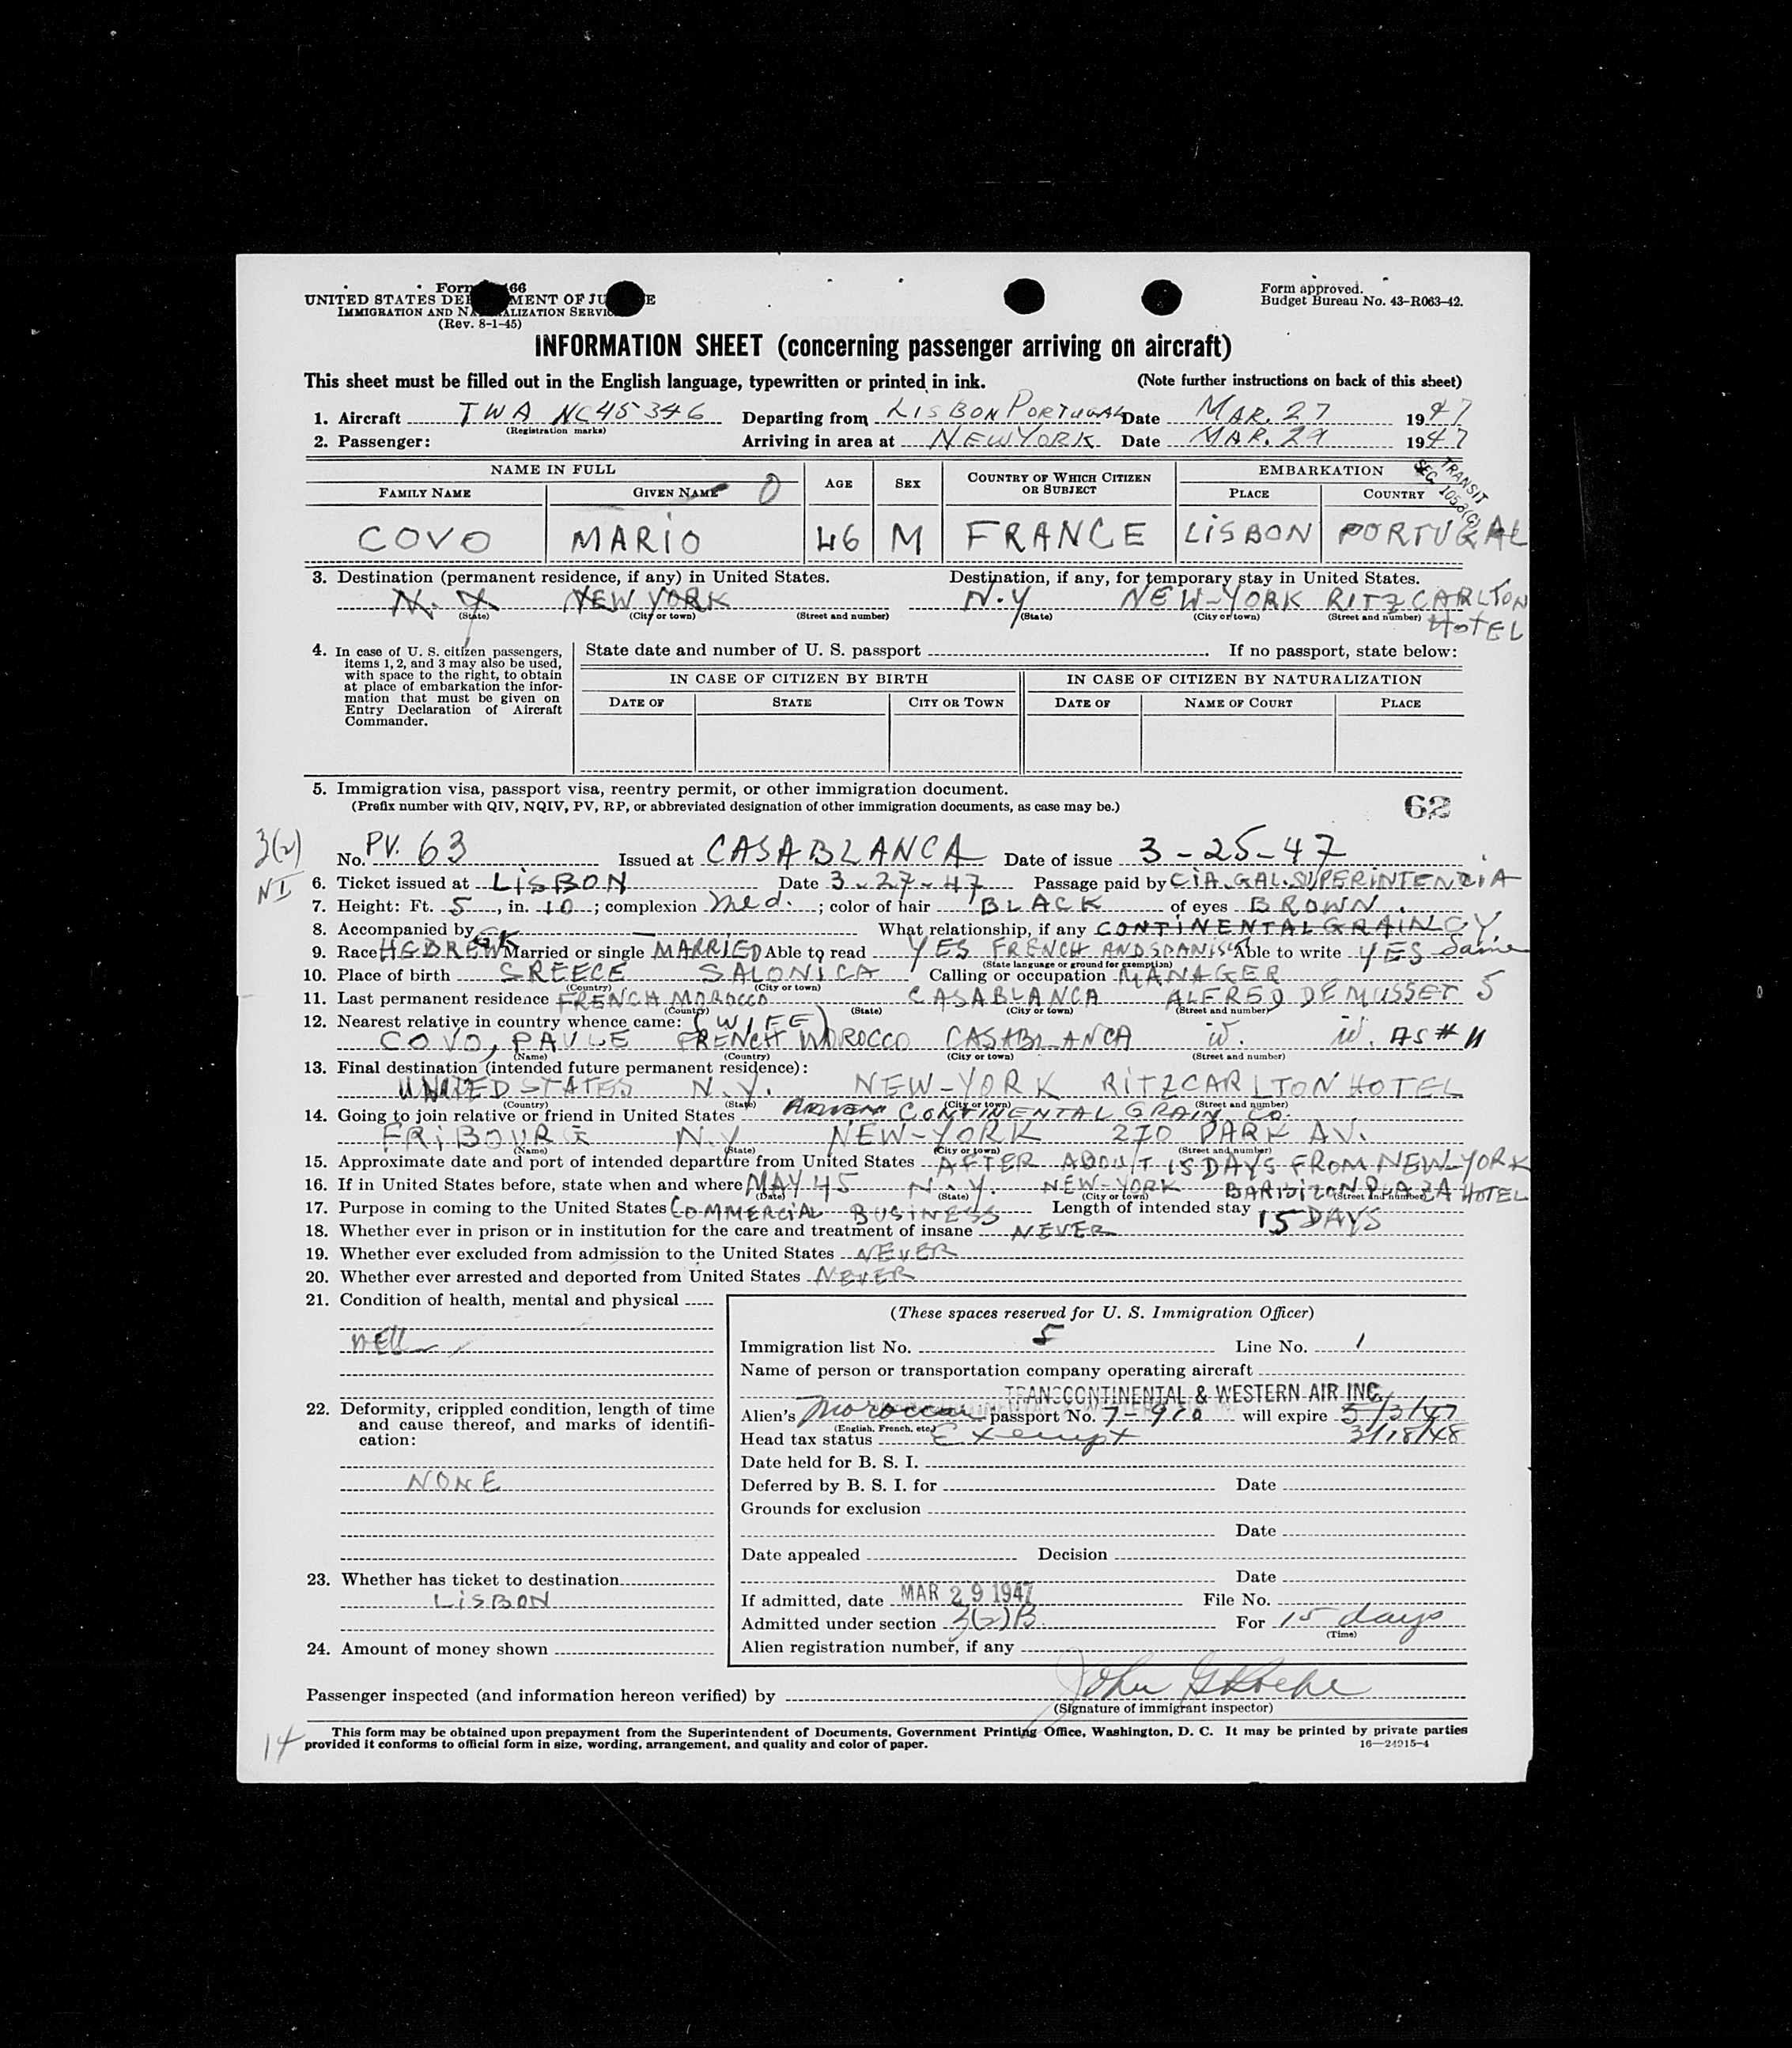 Form 66
Form approved.
UNITED STATES DEPARTMENT OF JUSTICE
Budget Bureau No. 43-R063-42.
IMMIGRATION AND NATURALIZATION SERVICE
(Rev. 8-1-45)
INFORMATION SHEET (concerning passenger arriving on aircraft)
This sheet must be filled out in the English language, typewritten or printed in ink. (Note further instructions on back of this sheet)
1. Aircraft TWA NC45346 Departing from LISBON PORTUGAL Date MAR. 27 1947
(Registration marks)
2. Passenger: Arriving in area at NEW YORK Date MAR. 29 1947
TRANSIT
SEC 1058(C)
NAME IN FULL AGE SEX COUNTRY OF WHICH CITIZEN OR SUBJECT EMBARKATION
FAMILY NAME GIVEN NAME O PLACE COUNTRY
COVO MARIO 46 M FRANCE LISBON PORTUGAL
3. Destination (permanent residence, if any) in United States. Destination, if any, for temporary stay in United States.
N.Y. NEW YORK N.Y NEW-YORK RITZ CARLTON HOTEL
(State) (City or town) (Street and number) (State) (City or town) (Street and number)
4. In case of U. S. citizen passengers, items 1, 2, and 3 may also be used, with space to the right, to obtain at place of embarkation the information that must be given on Entry Declaration of Aircraft Commander.
State date and number of U. S. passport If no passport, state below:
IN CASE OF CITIZEN BY BIRTH IN CASE OF CITIZEN BY NATURALIZATION
DATE OF STATE CITY OR TOWN DATE OF NAME OF COURT PLACE
5. Immigration visa, passport visa, reentry permit, or other immigration document.
(Prefix number with QIV, NQIV, PV, RP, or abbreviated designation of other immigration documents, as case may be.) 62
3(2)
NI
No. PV. 63 Issued at CASABLANCA Date of issue 3-25-47
6. Ticket issued at LISBON Date 3-27-47 Passage paid by CIA.GAL.SUPERINTENCIA
7. Height: Ft. 5, in. 10; complexion Med.; color of hair BLACK of eyes BROWN.
8. Accompanied by What relationship, if any CONTINENTAL GRAIN CY
9. Race HEBREW GK Married or single MARRIED Able to read YES FRENCH AND SPANISH Able to write YES Same
(State language or ground for exemption)
10. Place of birth GREECE SALONICA Calling or occupation MANAGER
(Country) (City or town)
11. Last permanent residence FRENCH MOROCCO CASABLANCA ALFRED DE MUSSET 5
(Country) (State) (City or town) (Street and number)
12. Nearest relative in country whence came: (WIFE)
COVO, PAULE FRENCH MOROCCO CASABLANCA AS # 11
(Name) (Country) (City or town) (Street and number)
13. Final destination (intended future permanent residence):
UNITED STATES N.Y. NEW-YORK RITZCARLTON HOTEL
(Country) (State) (City or town) (Street and number)
14. Going to join relative or friend in United States CONTINENTAL GRAIN Co.
FRIBOURG N.Y NEW-YORK 270 PARK AV.
(Name) (State) (City or town) (Street and number)
15. Approximate date and port of intended departure from United States AFTER ABOUT 15 DAYS FROM NEW-YORK
16. If in United States before, state when and where MAY 45 N.Y. NEW-YORK BARBIZON PLAZA HOTEL
(Date) (State) (City or town) (Street and number)
17. Purpose in coming to the United States COMMERCIAL BUSINESS Length of intended stay 15 DAYS
18. Whether ever in prison or in institution for the care and treatment of insane NEVER
19. Whether ever excluded from admission to the United States NEVER
20. Whether ever arrested and deported from United States NEVER
21. Condition of health, mental and physical
well
22. Deformity, crippled condition, length of time and cause thereof, and marks of identification:
NONE
23. Whether has ticket to destination
LISBON
24. Amount of money shown
(These spaces reserved for U. S. Immigration Officer)
Immigration list No. 5 Line No. 1
Name of person or transportation company operating aircraft
TRANSCONTINENTAL & WESTERN AIR INC.
Alien's Moroccan passport No. 7-970 will expire 3/3/47
(English, French, etc.)
Head tax status Exempt 3/18/48
Date held for B. S. I.
Deferred by B. S. I. for Date
Grounds for exclusion
Date
Date appealed Decision
Date
If admitted, date MAR 29 1947 File No.
Admitted under section 3(2)B. For 15 days
(Time)
Alien registration number, if any
Passenger inspected (and information hereon verified) by John G
(Signature of immigrant inspector)
14
This form may be obtained upon prepayment from the Superintendent of Documents, Government Printing Office, Washington, D. C. It may be printed by private parties
provided it conforms to official form in size, wording, arrangement, and quality and color of paper. 16—24915-4